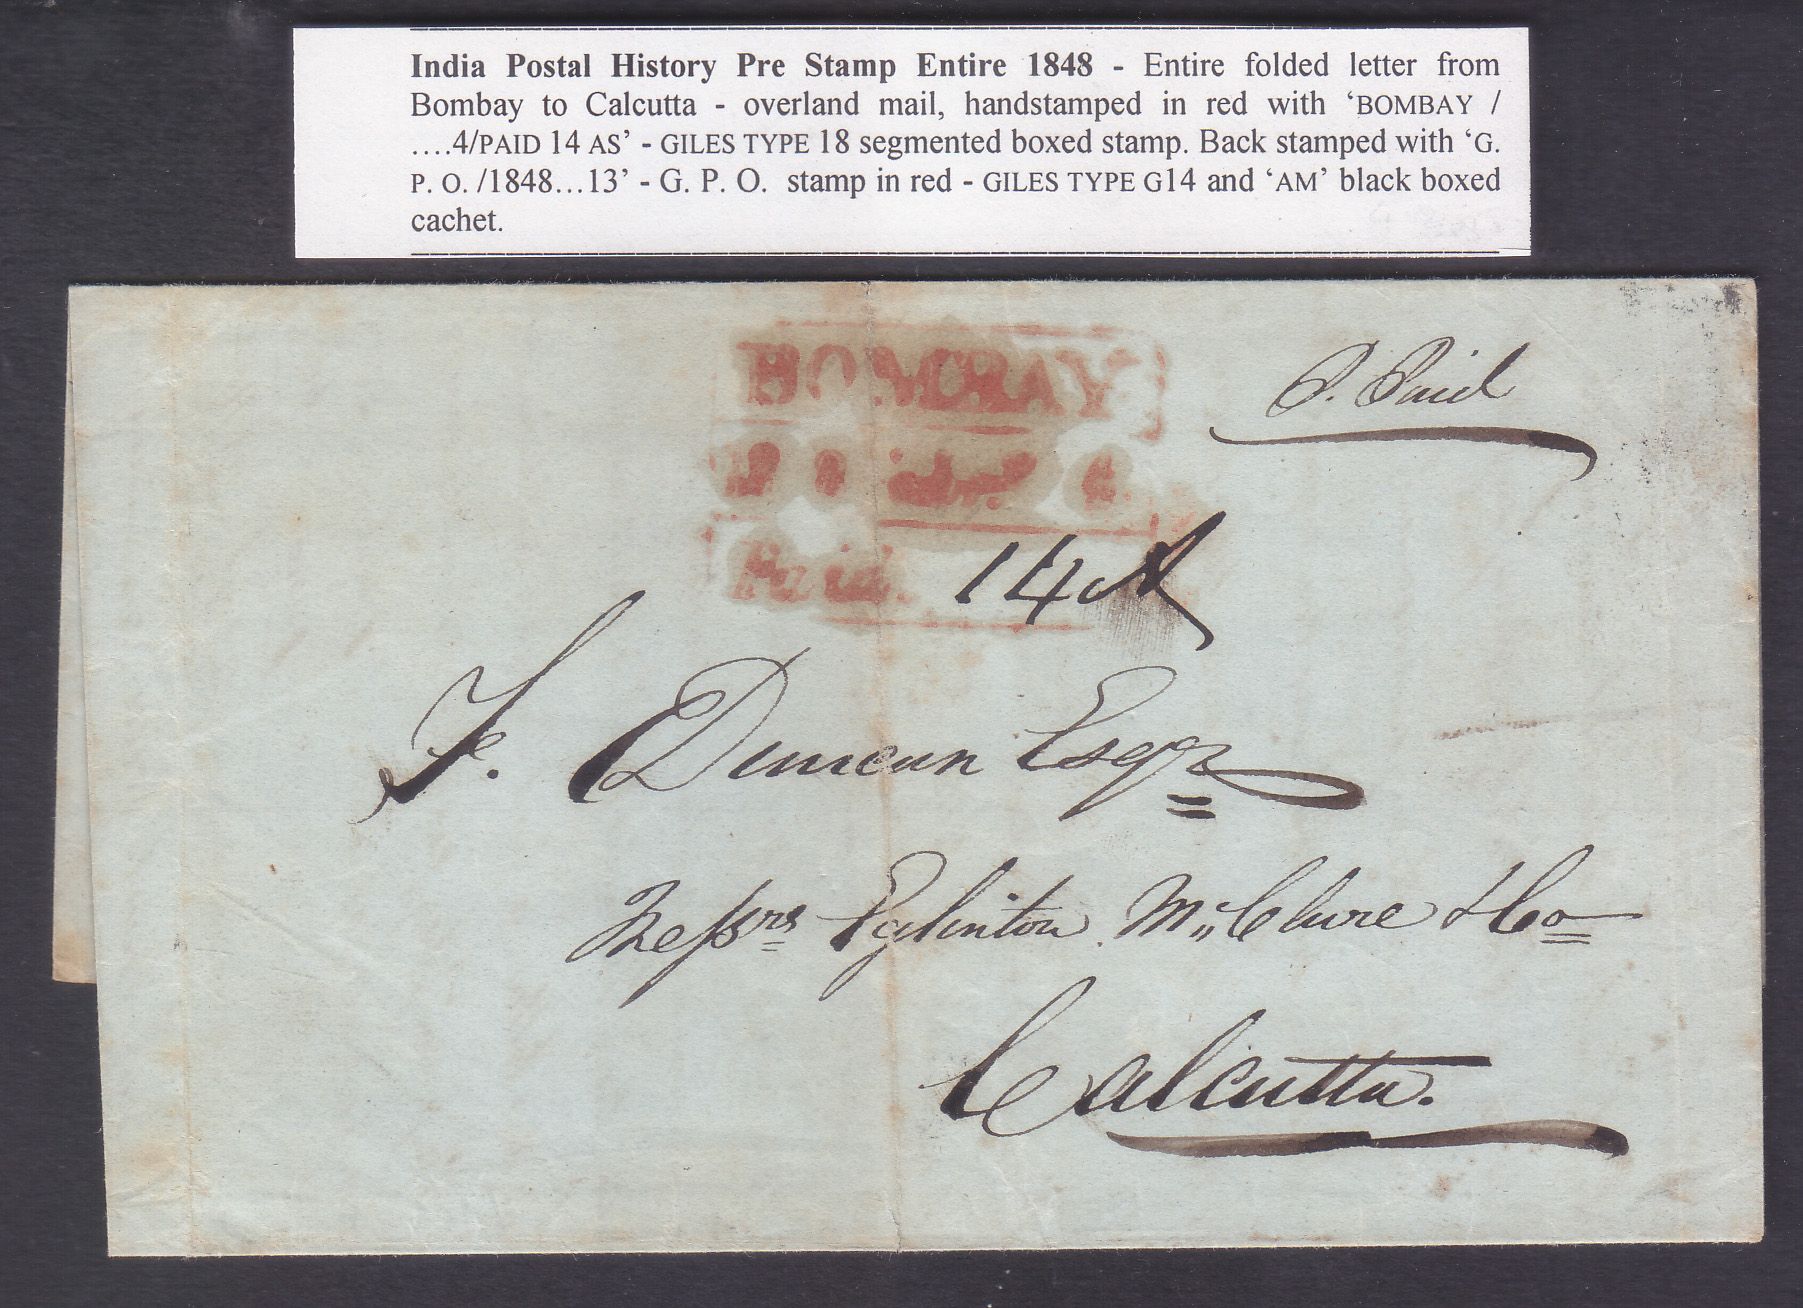 India Postal History Pre Stamp Entire 1848 - Entire folded letter from
Bombay to Calcutta - overland mail, handstamped in red with ‘BOMBAY /
….4/PAID 14 AS’ - GILES TYPE 18 segmented boxed stamp. Back stamped with ‘G.
P. O. /1848…13’ - G. P. O. stamp in red - GILES TYPE G14 and ‘AM’ black boxed
cachet.
BOMBAY
P. Paid
Paid. 14 A
F. Duncan Esqr
Messrs Eglinton McClure & Co
Calcutta.